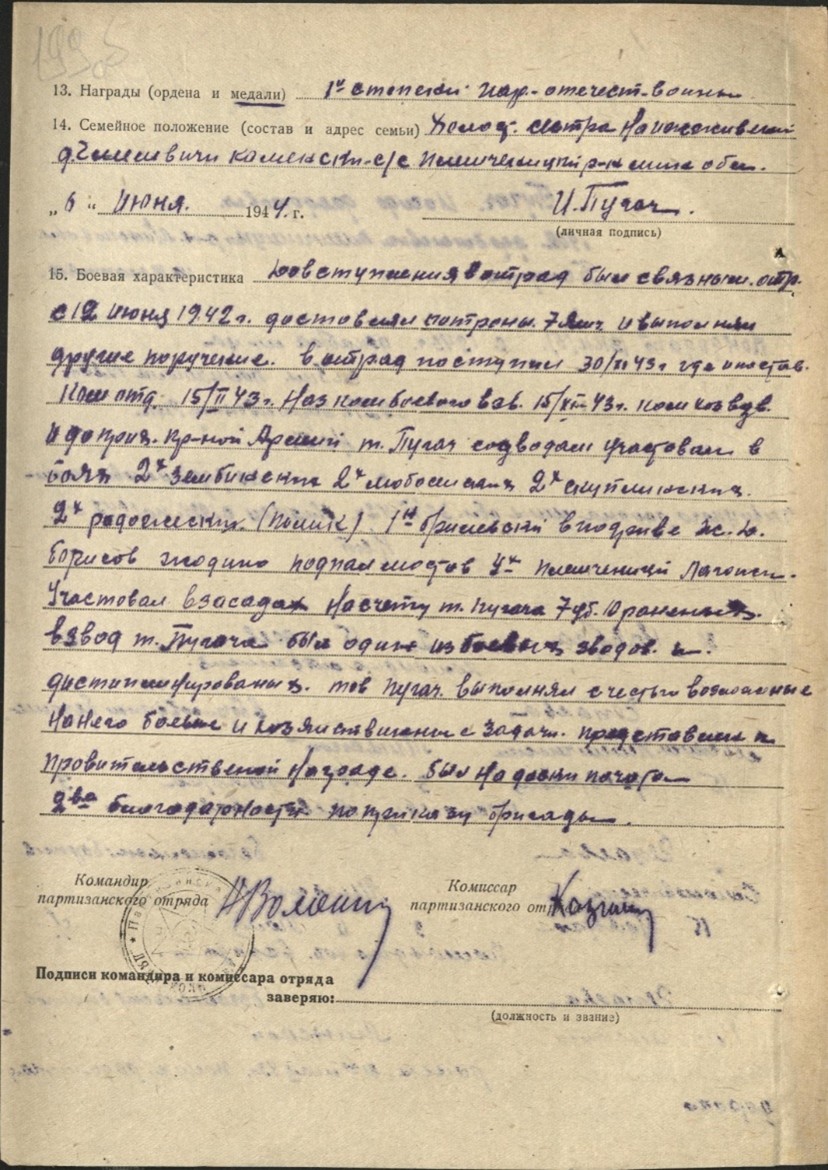 1995
13. Награды (ордена и медали) 1й степени пар. отечест. войны
14. Семейное положение (состав и адрес семьи) Холос. сестра
д. Каменск. с/с Плещеницкий р-н минск обл.
„6“ июня. 1944 г. И. Пугач.
(личная подпись)
15. Боевая характеристика До вступления в отряд был связным. отр.
с 12 июня 1942 г. доставлял патроны и выполнял
другие поручение. в отряд поступил 30/XI 43 г где
Ком отд 15/II 43 г. Наз ком боевого взв. 15/XII-43 г. ком хоз взв.
и до прих. Кр-ной Армий т. Пугач со взводам участовал в
боях 2х зембинских 2х 2х
2х 1й в подриве ж. д.
борисов жодино поджпал мостов 4х плещеницы Лагойск.
Участовал в засадах на счету т. Пугача 7 уб. 10 раненых.
взвод т. Пугача был один из боевых зводов. и
тов Пугач выполнял с честью возложеные
на него боевые и хозяиственные задачи. представлен к
правительственой награде. был на доски почота
2ва благодарность по приказу бригады
Командир
партизанского отряда
Комиссар
партизанского от
Подписи командира и комиссара отряда
заверяю:
(должность и звание)